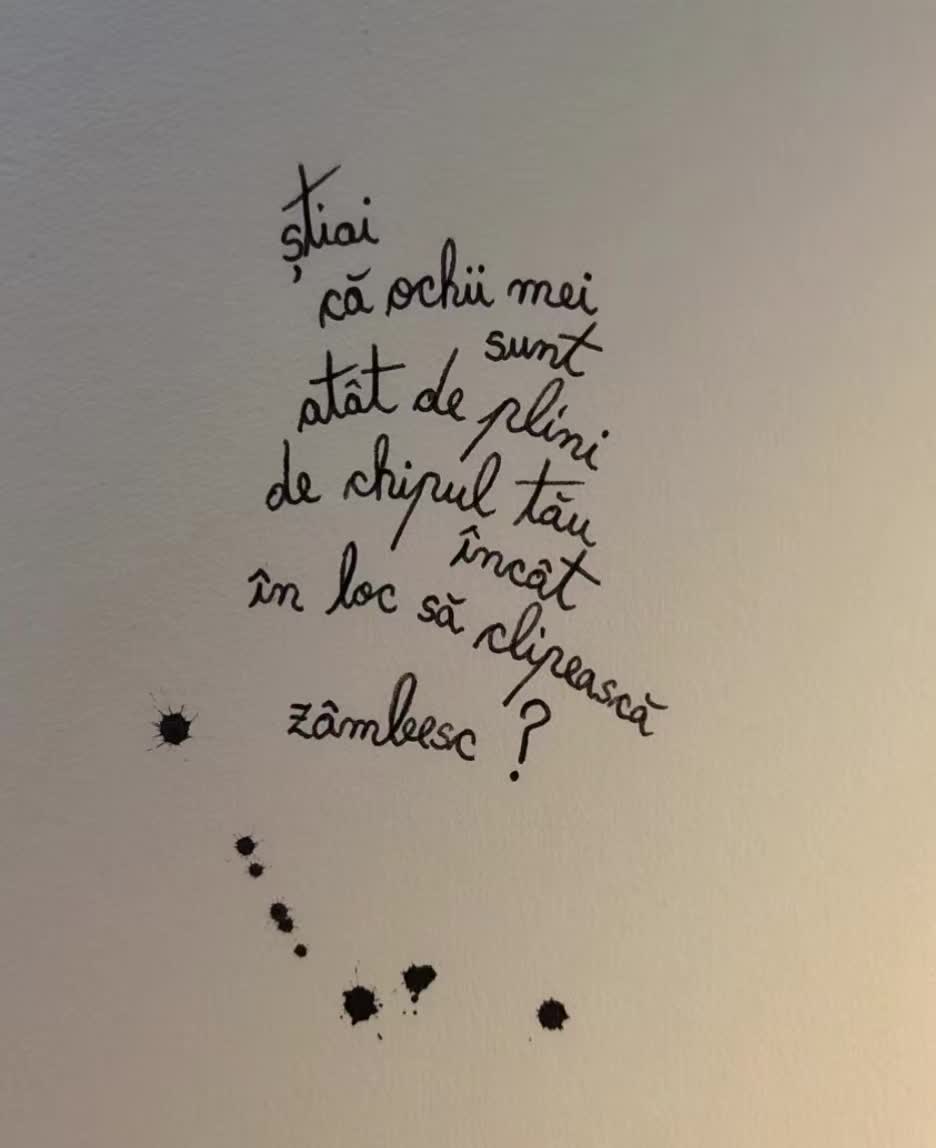 știai
că ochii mei
sunt
atât de plini
de chipul tău
încât
în loc să clipească
zâmbesc ?